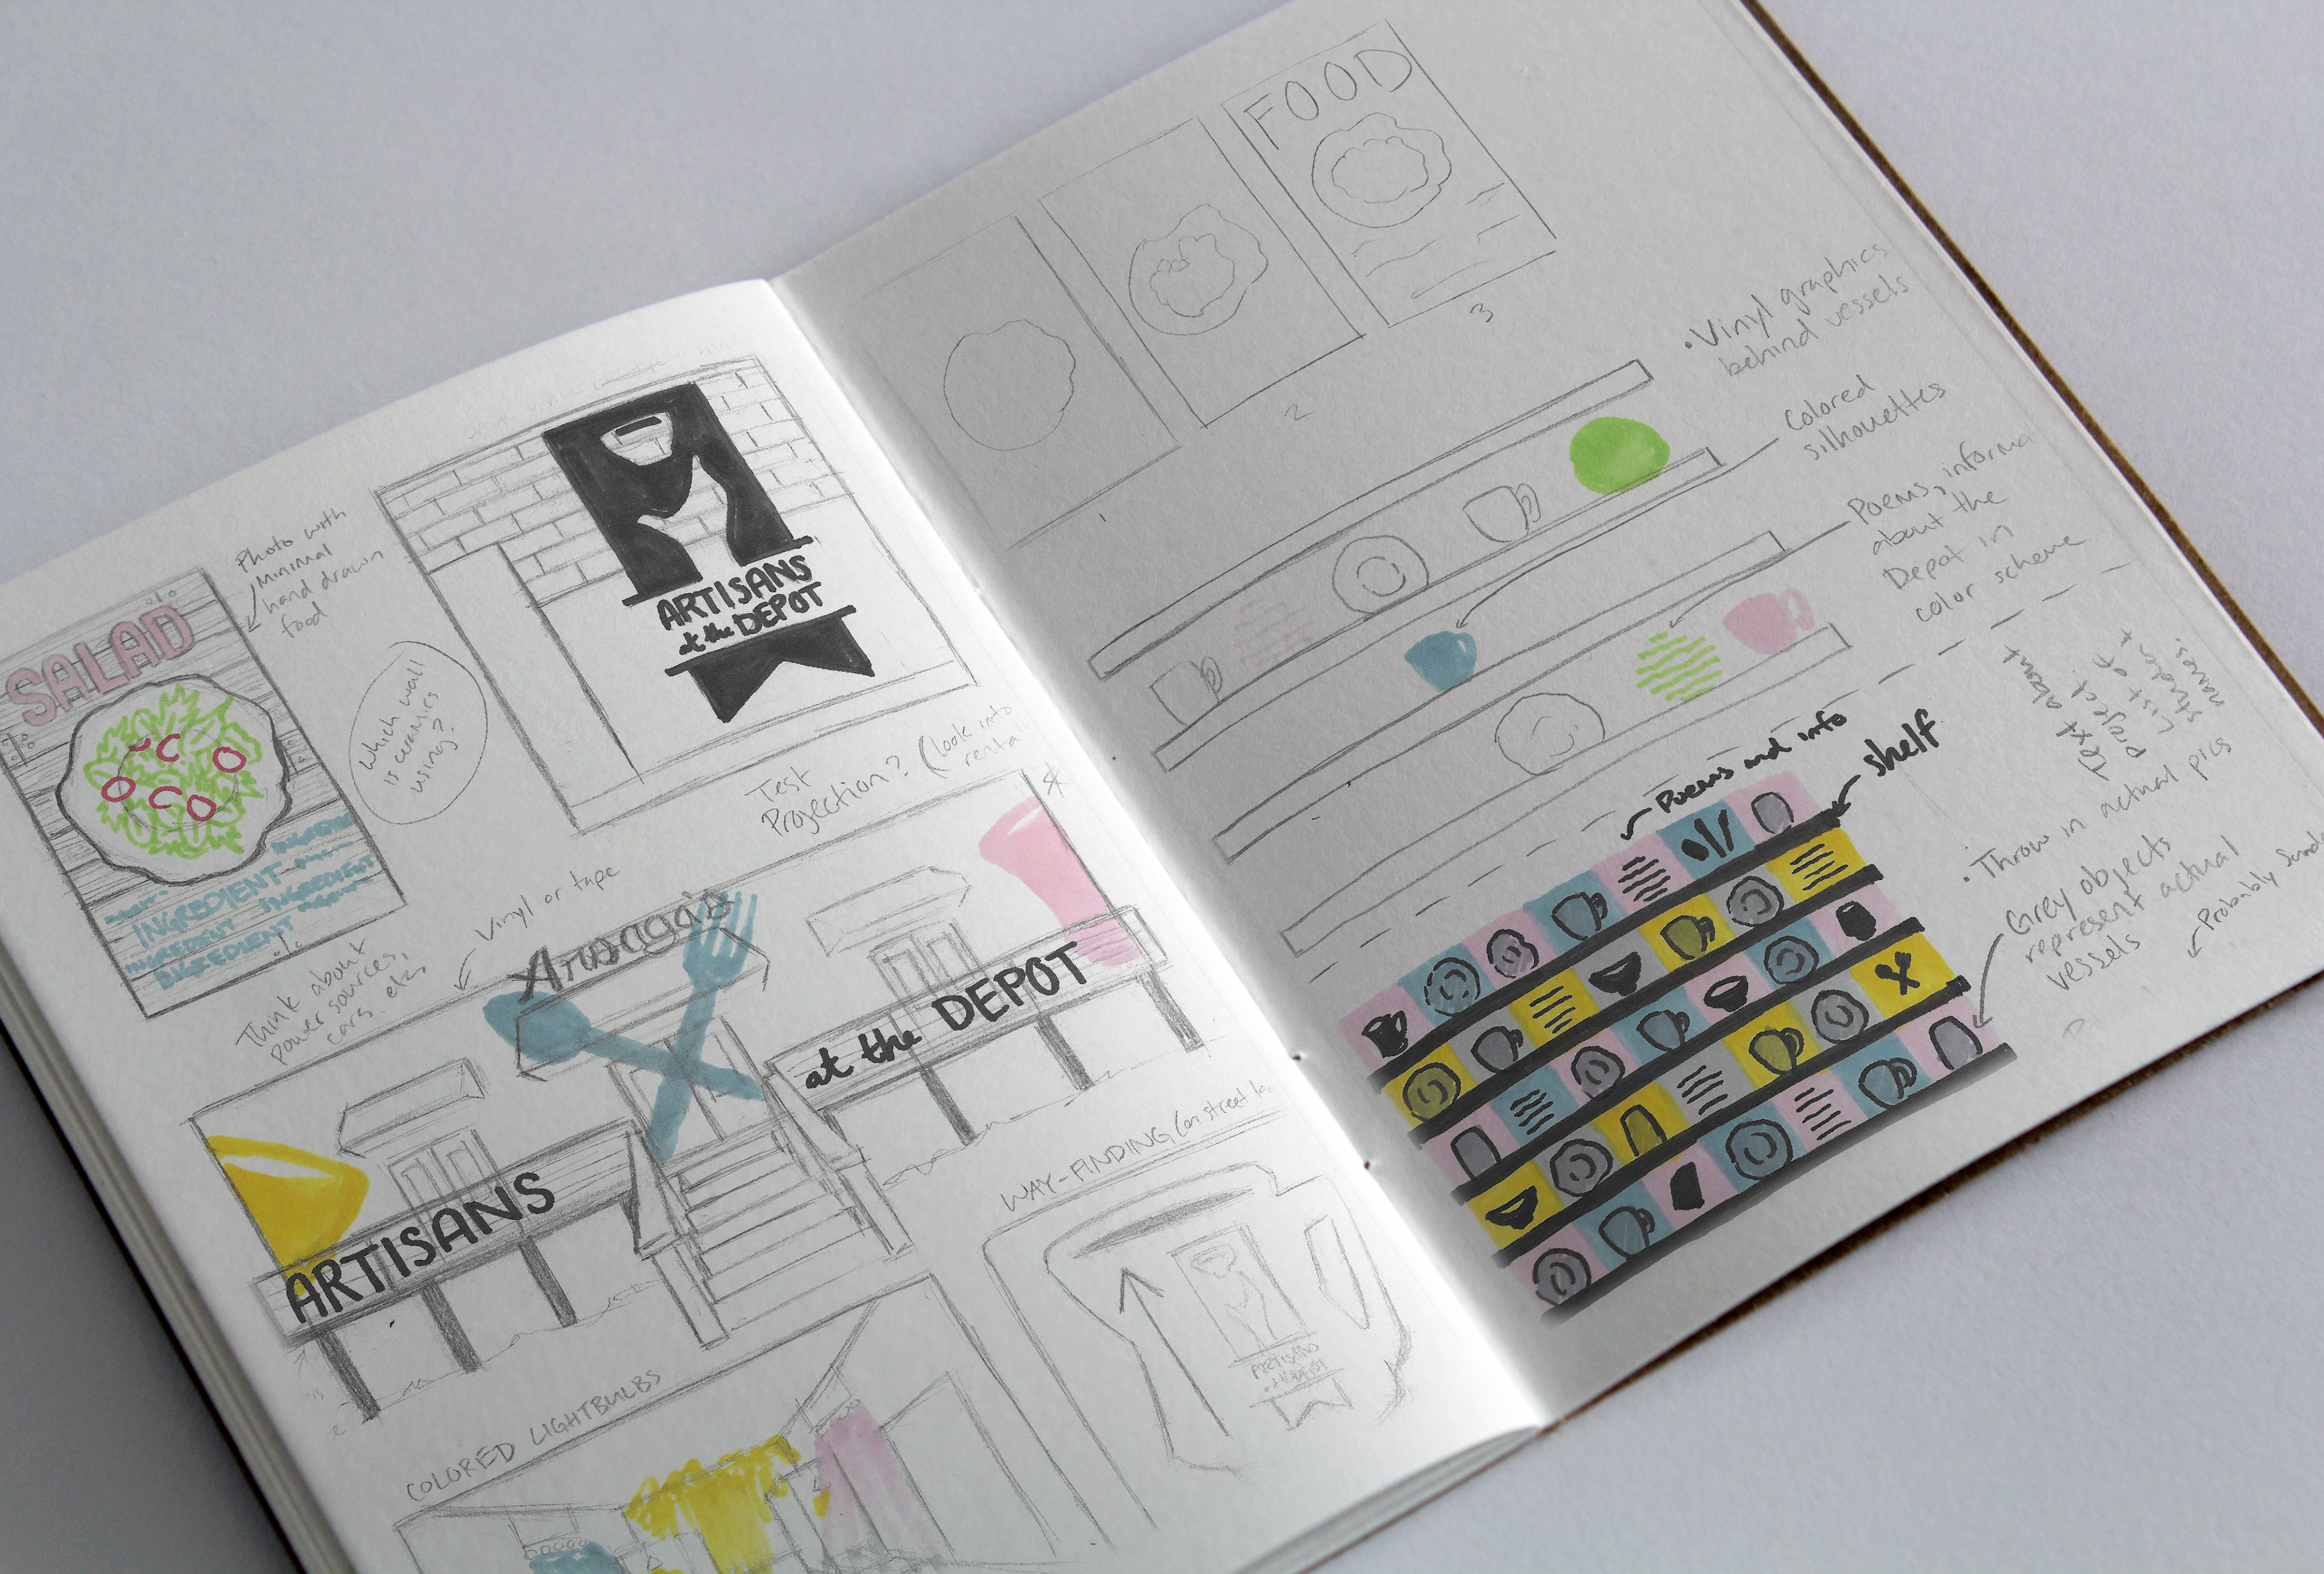 Photo with
minimal
hand drawn
food
SALAD
INGREDIENT
INGREDIENT
INGREDIENT
Which wall
is ceramics
using?
ARTISANS
at the DEPOT
Test
Projection? (look into
Think about
power sources,
cars, etc
Vinyl or tape
Arsaga's
ARTISANS
at the DEPOT
WAY-FINDING (on street
ARTISANS
DEPOT
COLORED LIGHTBULBS
FOOD
1
2
3
• Vinyl graphics
behind vessels
Colored
silhouettes
Poems, informa
about the
Depot in
color scheme
Text about
project.
List of
student
names.
Poems and info
shelf
• Throw in actual pics
Grey objects
represent actual
vessels
Probably